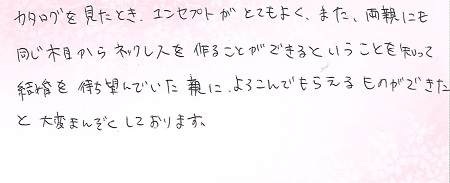 カタログを見たとき、コンセプトがとてもよく、また、両親にも
同じ木目からネックレスを作ることができるということを知って
結婚を待ち望んでいた親に、よろこんでもらえるものができた
と大変まんぞくしております。